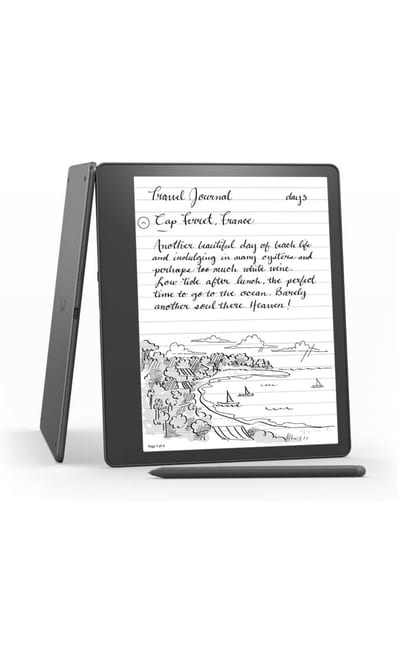 Travel Journal day 3
Cap Ferret, France
Another beautiful day of beach life
and indulging in many oysters and
perhaps too much white wine.
Low tide after lunch, the perfect
time to go to the ocean. Barely
another soul there. Heaven!
Page 1 of 8